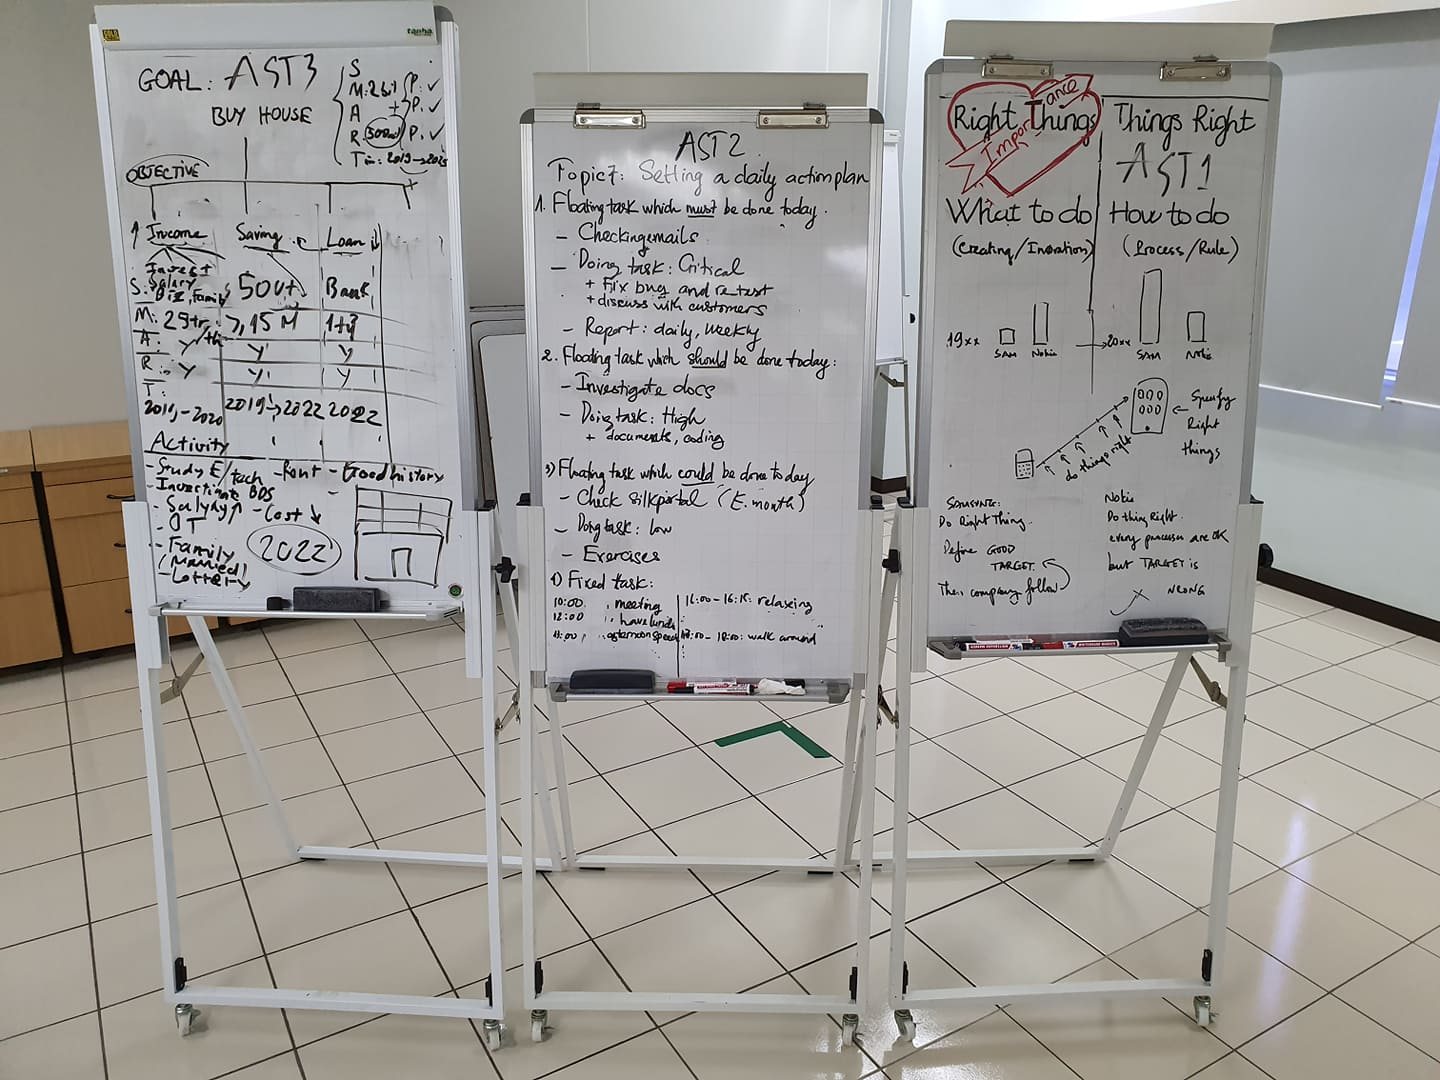 tanha
GOAL: AST3
BUY HOUSE
S
M:
A
R
T
P. ✓
P. ✓
P. ✓
OBJECTIVE
Income
Saving
Loan
Invest
Salary
Biz, Family
500+
Bank
S:
M:
7,15 M
A:
y
y
y
R:
y
y
y
T:
2019-2020
2019->2022
2022
Activity
- Study E/tech
- Rent
- Good history
- Investigate BDS
- Salary ↑
- Cost ↓
- OT
- Family
(Married)
- Lottery
2022
AST2
Topic7: Setting a daily action plan
1. Floating task which must be done today.
- Checking emails
- Doing task: Critical
+ Fix bug and re test
+ discuss with customers
- Report: daily, weekly
2. Floating task which should be done today:
- Investigate docs
- Doing task: High
+ documents, coding
3) Floating task which could be done today
- Check silkportal (E. month)
- Doing task: low
- Exercises
4) Fixed task:
10:00 : meeting
12:00 : have lunch
: afternoon speech
16:00 - 16:15: relaxing
- 18:00: walk around
Right Things
Importance
Things Right
AST1
What to do
How to do
(Creating/Inovation)
(Process/Rule)
19xx
SAM
Nokia
20xx
SAM
Nokia
do things right
Specify
Right
things
SAMSUNG:
Do Right Thing.
Define GOOD
TARGET.
Then company follow
Nokia
Do thing Right.
every processes are OK
but TARGET is
WRONG